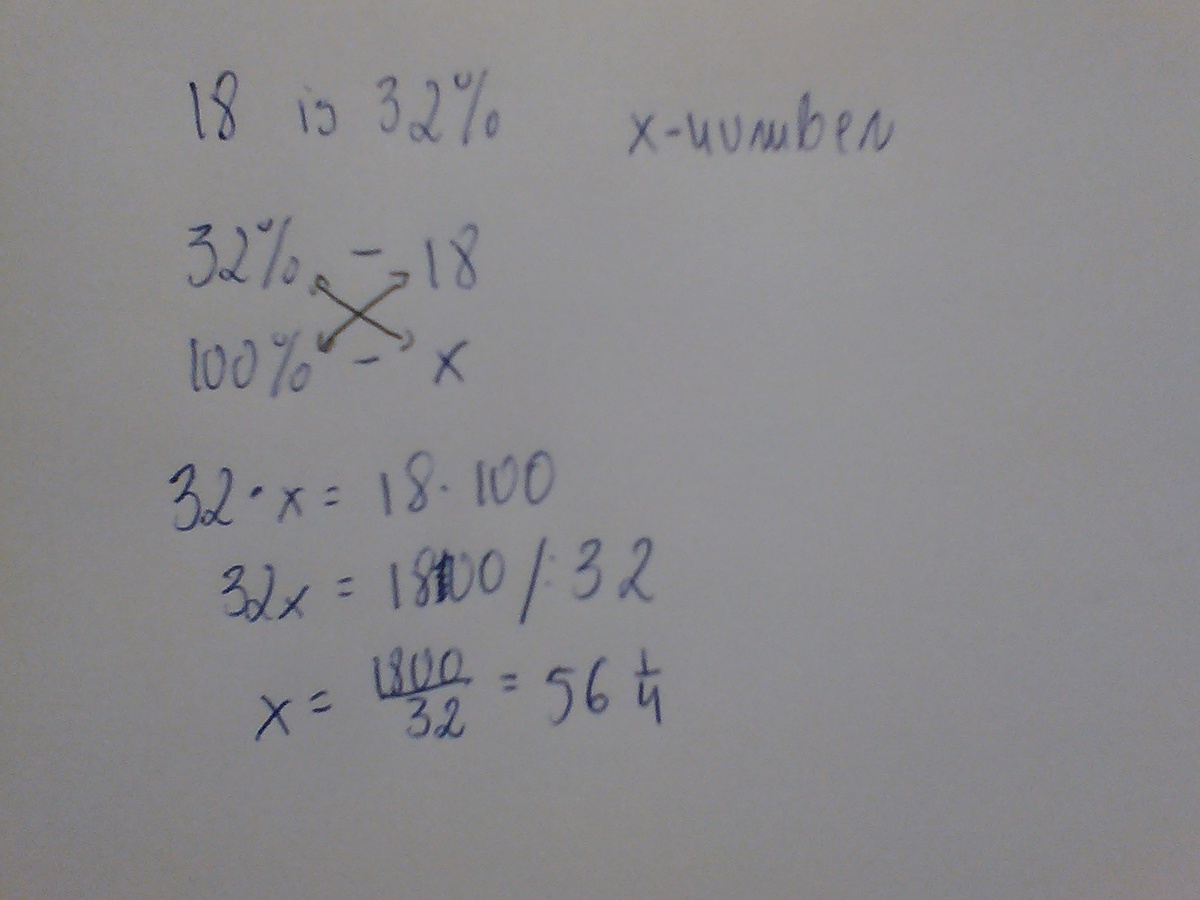 18 is 32% x-number
32% - 18
100% - x
32 · x = 18 · 100
32x = 1800 /: 32
x = 1800/32 = 56 1/4